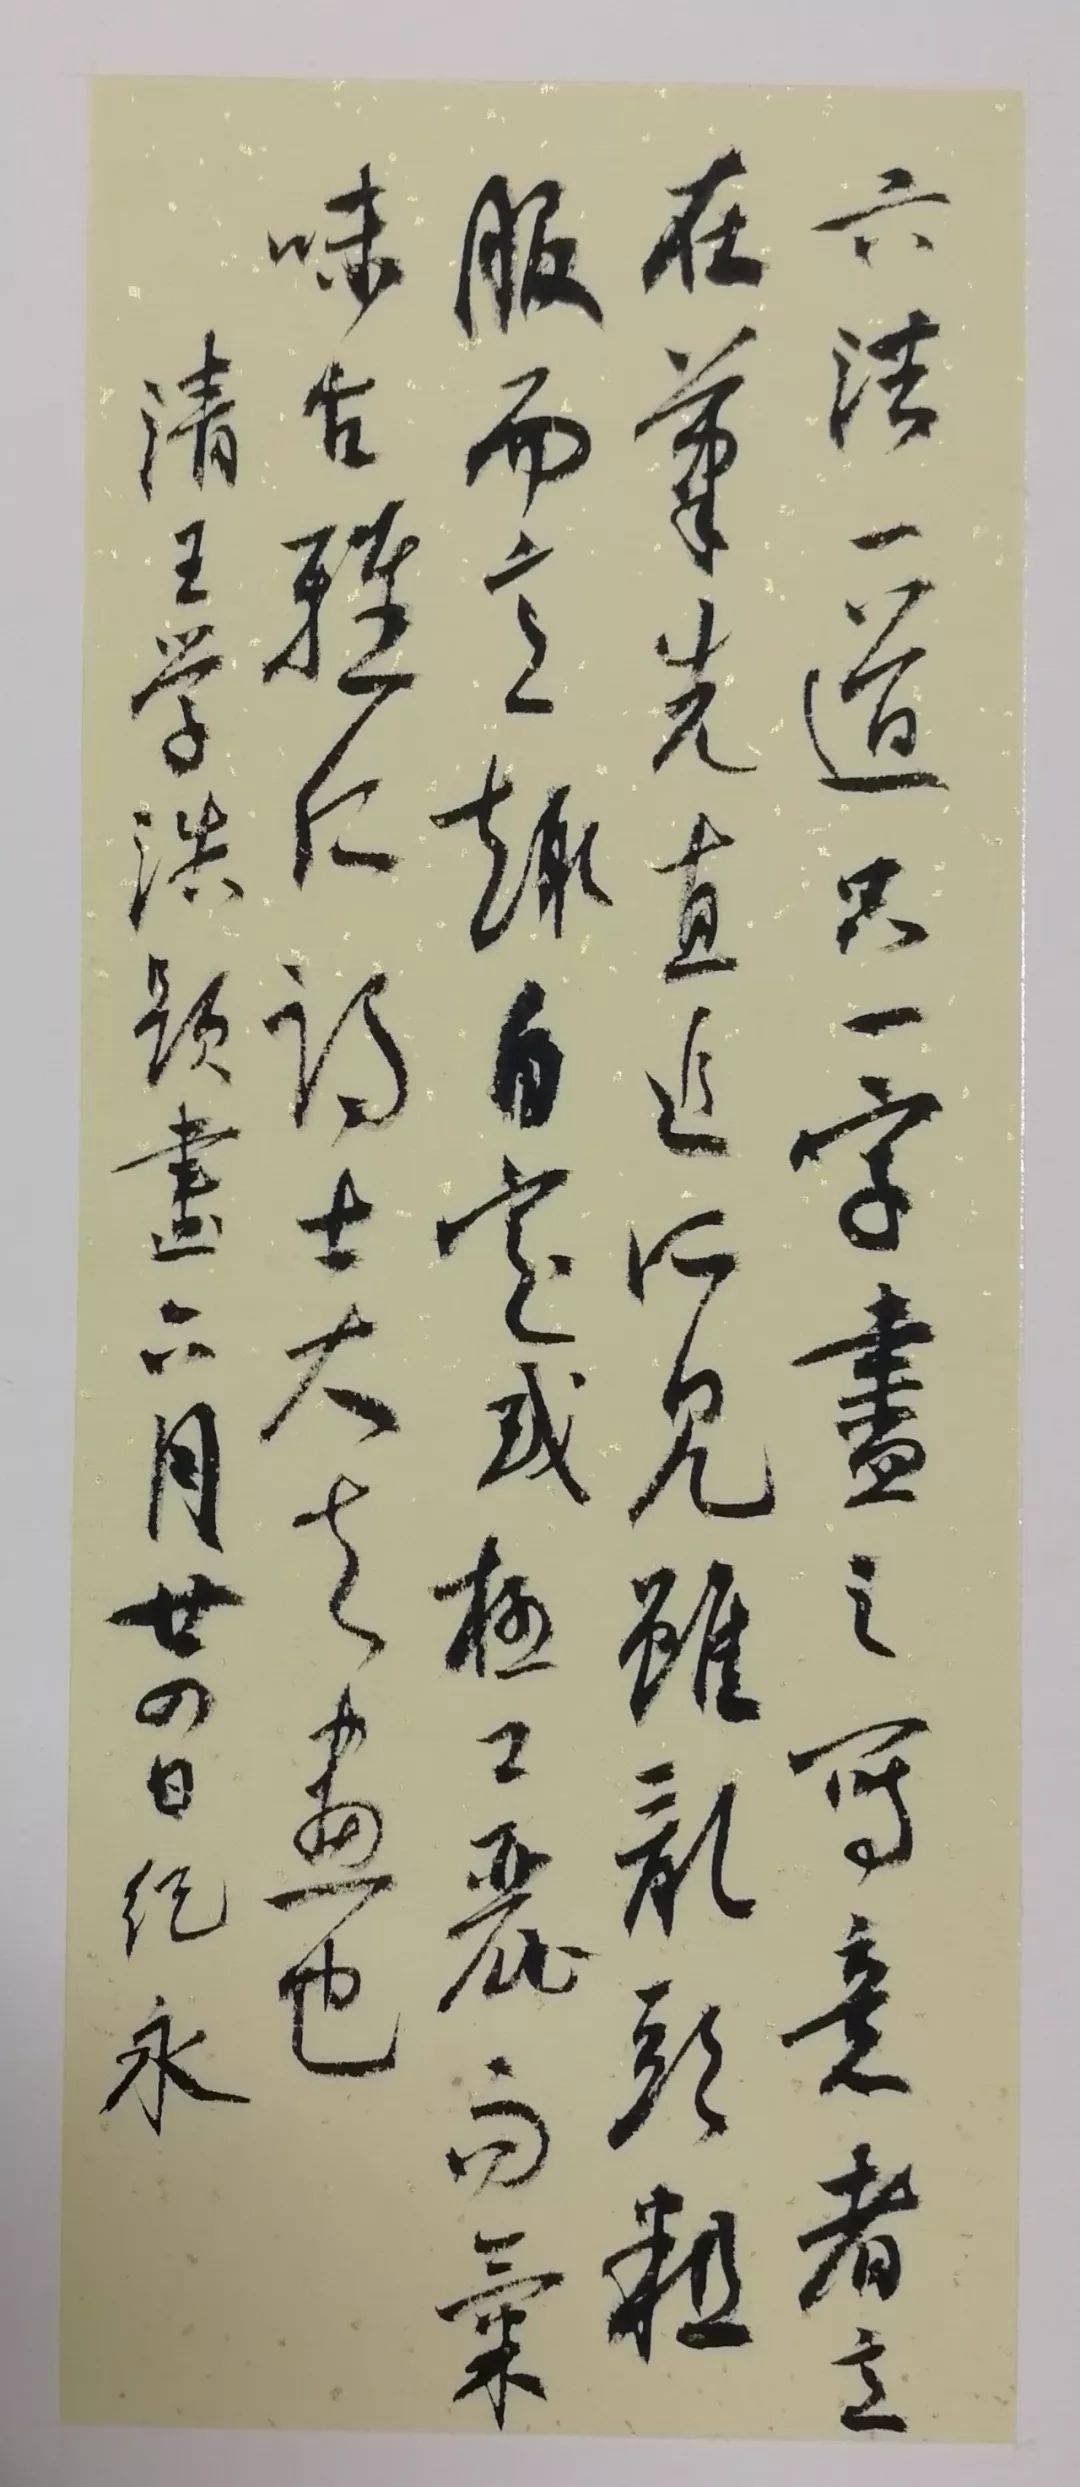 六法一道只一字盡之寫意者意
在筆先直追所見雖亂頭粗
服而意趣自或極工麗而氣
味古雅所謂士大夫畫也
清王学浩題畫六月廿四日紀永